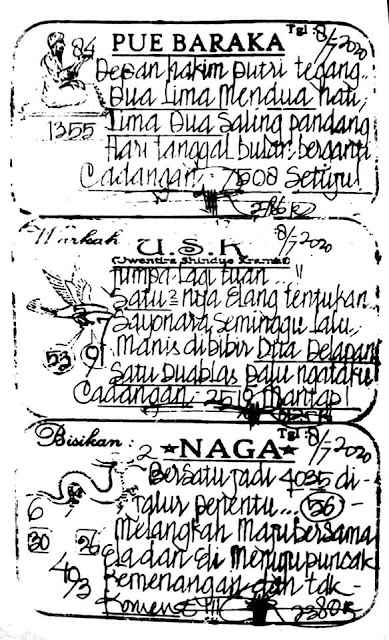 PUE BARAKA
Tgl: 8/7 2020
84
Depan hakim putri tegang..
Dua Lima Mendua hati,
Lima Dua Saling pandang
1355
Hari tanggal bulan, berganti
Cadangan: 7908 Setuju!
Warkah
U.S.K
8/7 2020
(Uwentira Shindue Kramat)
Jumpa lagi tuan..."
Satu² nya Elang tentukan
Sayonara, Seminggu lalu,
53 9
Manis dibibir Dita Delapan
Satu Duablas palu ngataku!
Cadangan: 2519 Mantap!
Bisikan:
2
★NAGA★
Tgl 8/7 2020
Bersatu jadi 4035 di-
jalur penentu... (56) -
6
Melangkah Maju bersama
30 26
Menuju puncak
40/3
Kemenangan dan tdk -